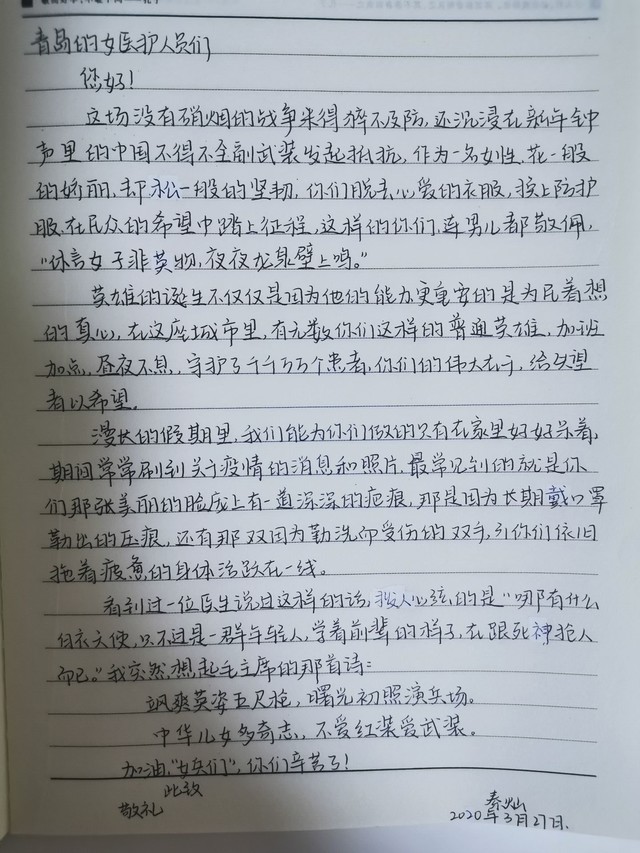 青岛的女医护人员们
您好!
这场没有硝烟的战争来得猝不及防,还沉浸在新年钟
声里的中国不得不全副武装发起抵抗,作为一名女性,花一般
的娇丽,却松一般的坚韧,你们脱去心爱的衣服,换上防护
服,在民众的希望中踏上征程,这样的你们,连男儿都敬佩,
“休言女子非英物,夜夜龙泉壁上鸣。”
英雄的诞生不仅仅是因为他的能力更重要的是为民着想
的真心,在这座城市里,有无数你们这样的普通英雄,加班
加点,昼夜不息,守护了千千万万个患者,你们的伟大在于,给失望
者以希望。
漫长的假期里,我们能为你们做的只有在家里好好呆着,
期间常常刷到关于疫情的消息和照片,最常见到的就是你
们那张美丽的脸庞上有一道深深的疤痕,那是因为长期戴口罩
勒出的压痕,还有那双因为勤洗而受伤的双手,可你们依旧
拖着疲惫的身体活跃在一线。
看到过一位医生说过这样的话,拨人心弦的是“哪有什么
白衣天使,只不过是一群年轻人,学着前辈的样子,在跟死神抢人
而已。”我突然想起毛主席的那首诗:
飒爽英姿五尺枪,曙光初照演兵场。
中华儿女多奇志,不爱红装爱武装。
加油,“女兵们”,你们辛苦了!
此致
敬礼
秦灿
2020年3月27日.